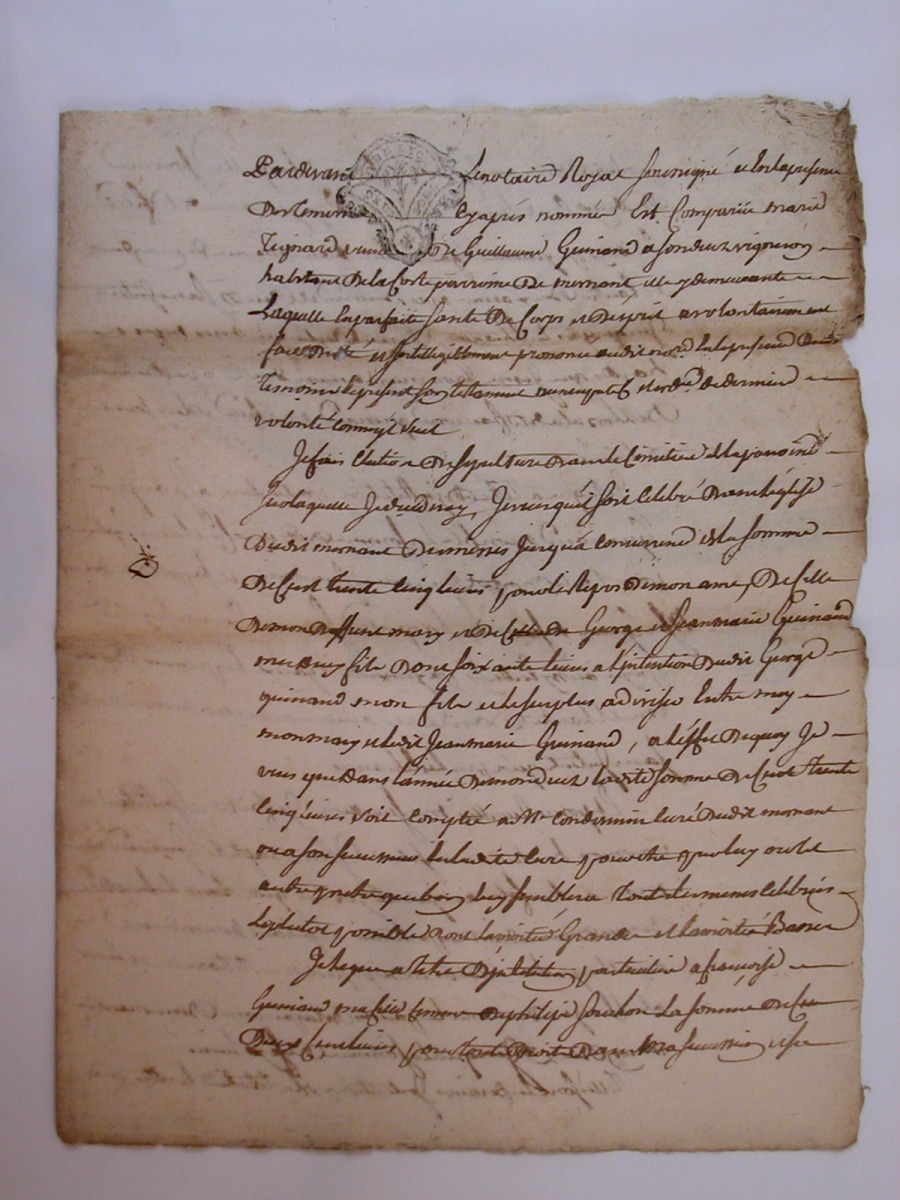 Pardevant Le notaire Royal soussigné et En la presence
Des temoins Cy apres nommés Est Comparüe marie
veuve De Guillaume Guinand a son deces vigneron
habitant De la Coste parroisse De mornant elle y demeurante
Laquelle En parfaitte santé De Corps et D'esprit a volontairement
fait Dicté et Intelligiblement prononcé audit no.re En la presence Desd.
temoins le present son testament nuncupatif et ordce de derniere
volonté Comme s'ensuit
Je fais Election De sepulture Dans le Cimetiere de la parroisse
Sur laquelle Je decederay, Je veux qu'il soit Celebré Dans l'eglise
Dudit mornant Des messes Jusqu'a Concurrence de la somme
De Cent trente Cinq livres pour le Repos De mon ame, De Celle
De mon Deffunt mary et de Celle de George et Jean marie Guinand
mes Deux fils Dont soixante livres a l'intention Dudit George
guinand mon fils et le surplus a diviser Entre moy
mon mary et ledit Jean marie Guinand, a l'effet De quoy Je
veux que Dans l'année De mon deces laditte somme De Cent trente
Cinq livres soit Comptée a Mr Condermin Curé Dudit mornant
ou a son successeur En laditte Cure pour etre par luy ou tel
autre pretre que bon luy semblera toutes les messes Celebrées
Le plutot possible Dont la moitié Grandes et la moitié Basses
Je legue a titre D'institution particuliere a francoise
Guinand ma fille femme De philipe souchon La somme De
Deux Cent livres pour tout Droit Dans Ma succession